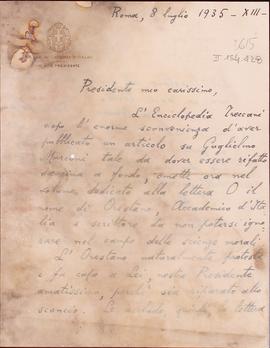 Roma, 8 luglio 1935 - XIII -
Presidente mio carissimo,
L'Enciclopedia Treccani
dopo l'enorme sconvenienza d'aver
pubblicato un articolo su Guglielmo
Marconi tale da dover essere rifatto
da cima a fondo, omette ora nel
volume dedicato alla lettera O il
nome di Orestano, Accademico d'Ita
lia e scrittore da non potersi igno
rare nel campo delle scienze morali.
L'Orestano naturalmente protesta
e fa capo a Lei, nostro Presidente
amatissimo, perchè sia riparato allo
sconcio. Le accludo, quindi, la lettera